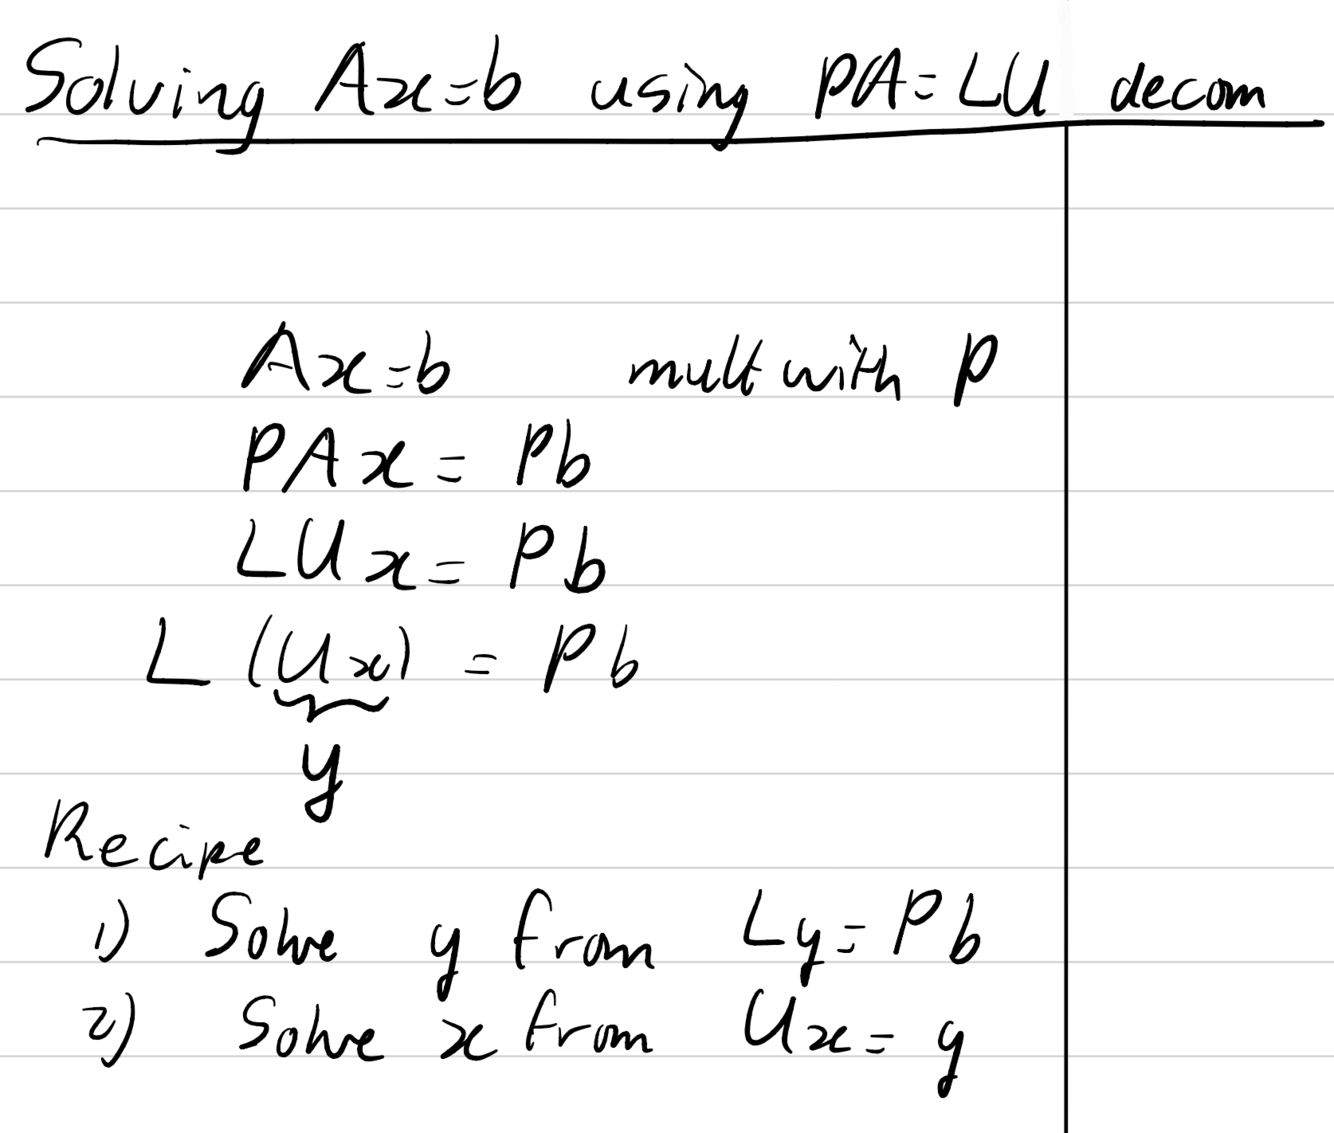 Solving Ax=b using PA=LU decom
Ax=b mult with P
PAx = Pb
LUx = Pb
L (Ux) = Pb
y
Recipe
1) Solve y from Ly=Pb
2) Solve x from Ux=y